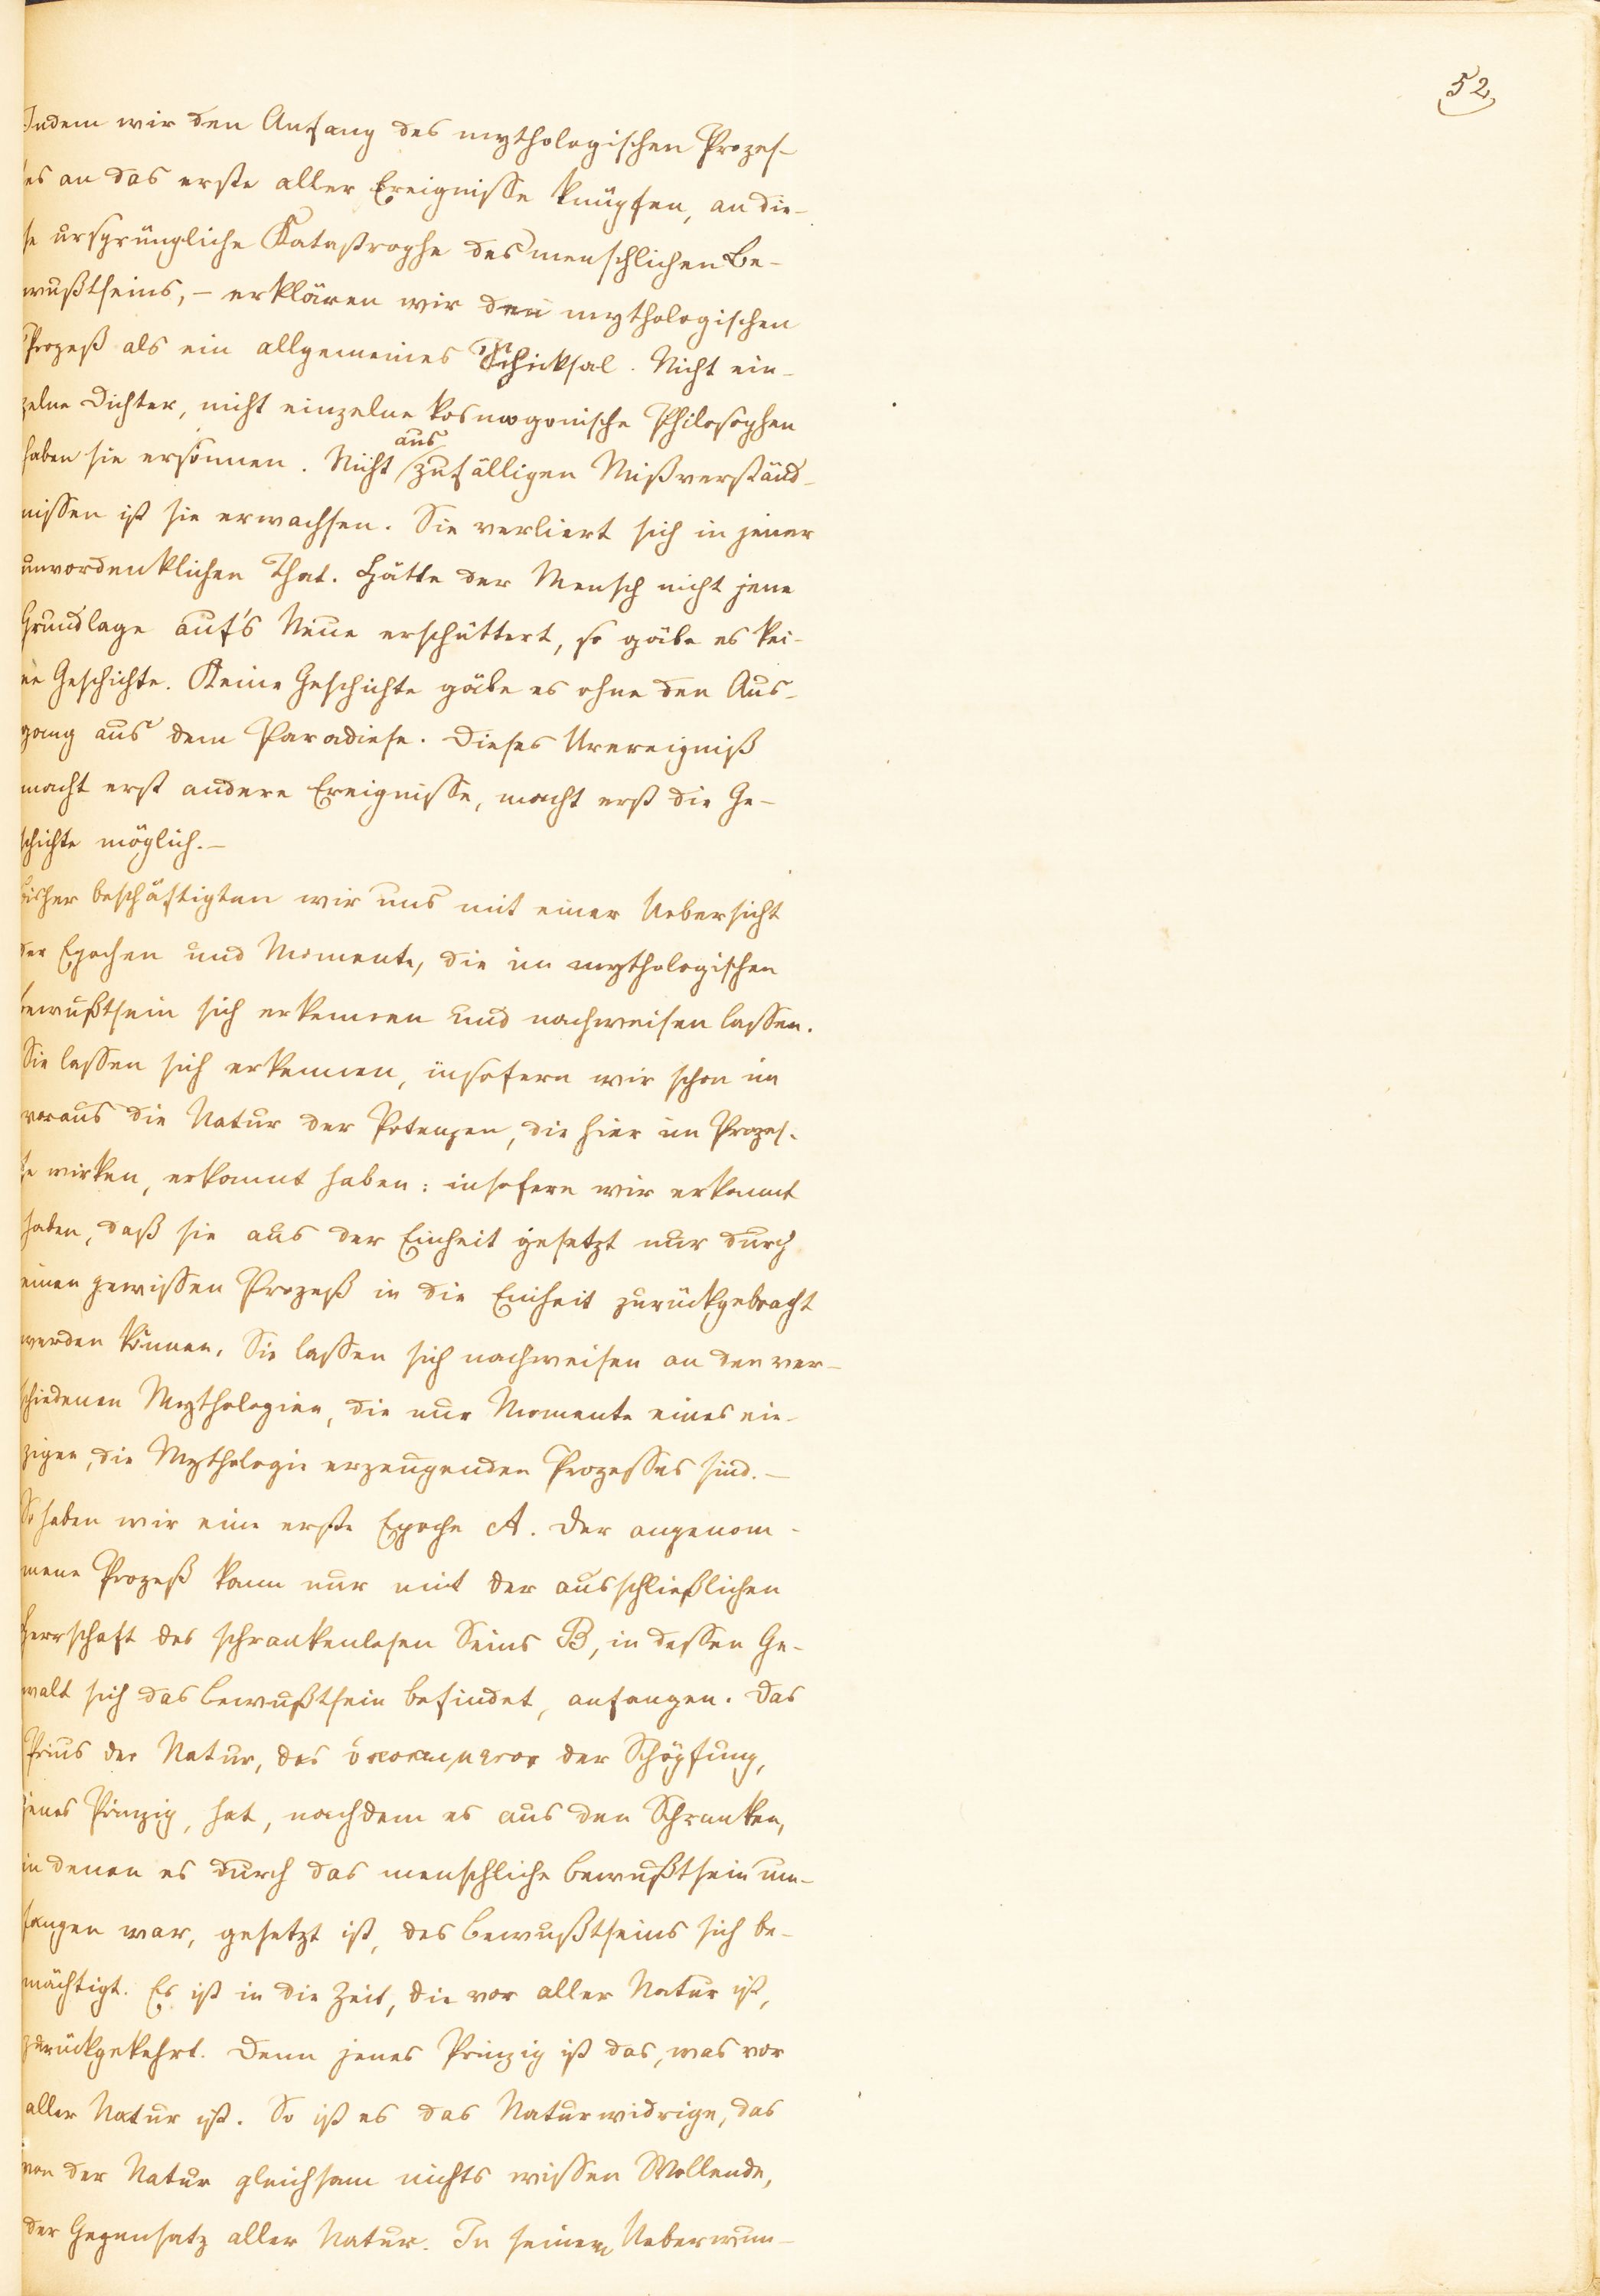 52
Indem wir den Anfang des mythologischen Prozes-
ses an das erste aller Ereignisse knüpfen, an die-
se ursprüngliche Katastrophe des menschlichen Be-
wußtseins, – erklären wir den mythologischen
Prozeß als ein allgemeines Schicksal. Nicht ein-
zelne Dichter, nicht einzelne kosmogonische Philosophen
haben sie ersonnen. Nicht aus zufälligen Mißverständ-
nissen ist sie erwachsen. Sie verliert sich in jener
unvordenklichen That. Hätte der Mensch nicht jene
Grundlage auf's Neue erschüttert, so gäbe es kei-
ne Geschichte. Keine Geschichte gäbe es ohne den Aus-
gang aus dem Paradiese. Dieses Urereigniß
macht erst andere Ereignisse, macht erst die Ge-
schichte möglich. –
Bisher beschäftigten wir uns mit einer Uebersicht
der Epochen und Momente, die im mythologischen
Bewußtsein sich erkennen und nachweisen lassen.
Sie lassen sich erkennen, insofern wir schon im
voraus die Natur der Potenzen, die hier im Prozes-
se wirken, erkannt haben: insofern wir erkannt
haben, daß sie aus der Einheit gesetzt nur durch
einen gewissen Prozeß in die Einheit zurückgebracht
werden können. Sie lassen sich nachweisen an den ver-
schiedenen Mythologien, die nur Momente eines ein-
zigen, die Mythologie erzeugenden Prozesses sind. –
So haben wir eine erste Epoche A. Der angenom-
mene Prozeß kann nur mit der ausschließlichen
Herrschaft des schrankenlosen Seins B, in dessen Ge-
walt sich das Bewußtsein befindet, anfangen. Das
Prius der Natur, das der Schöpfung,
jenes Prinzip, hat, nachdem es aus den Schranken,
in denen es durch das menschliche Bewußtsein um-
fangen war, gesetzt ist, des Bewußtseins sich be-
mächtigt. Es ist in die Zeit, die vor aller Natur ist,
zurückgekehrt. Denn jenes Prinzip ist das, was vor
aller Natur ist. So ist es das Naturwidrige, das
von der Natur gleichsam nichts wissen Wollende,
der Gegensatz aller Natur. In seinem Ueberwun-